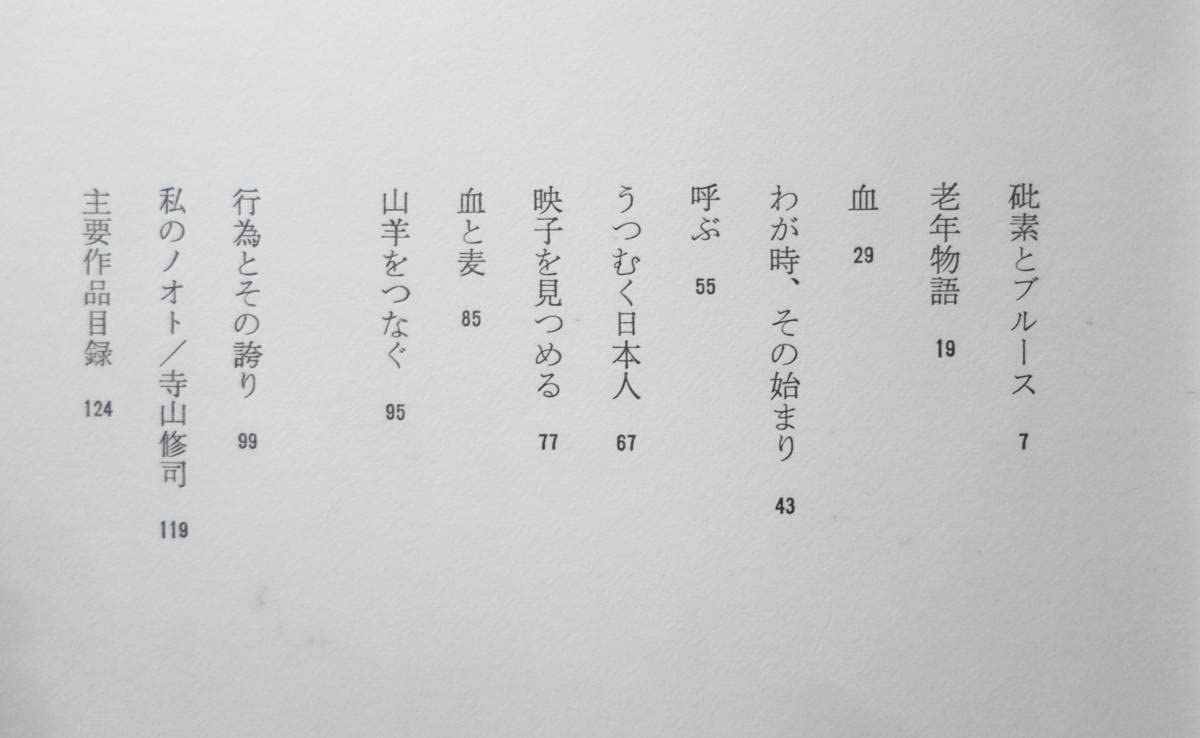 砒素とブルース 7
老年物語 19
血 29
わが時、その始まり 43
呼ぶ 55
うつむく日本人 67
映子を見つめる 77
血と麦 85
山羊をつなぐ 95
行為とその誇り 99
私のノオト／寺山修司 119
主要作品目録 124